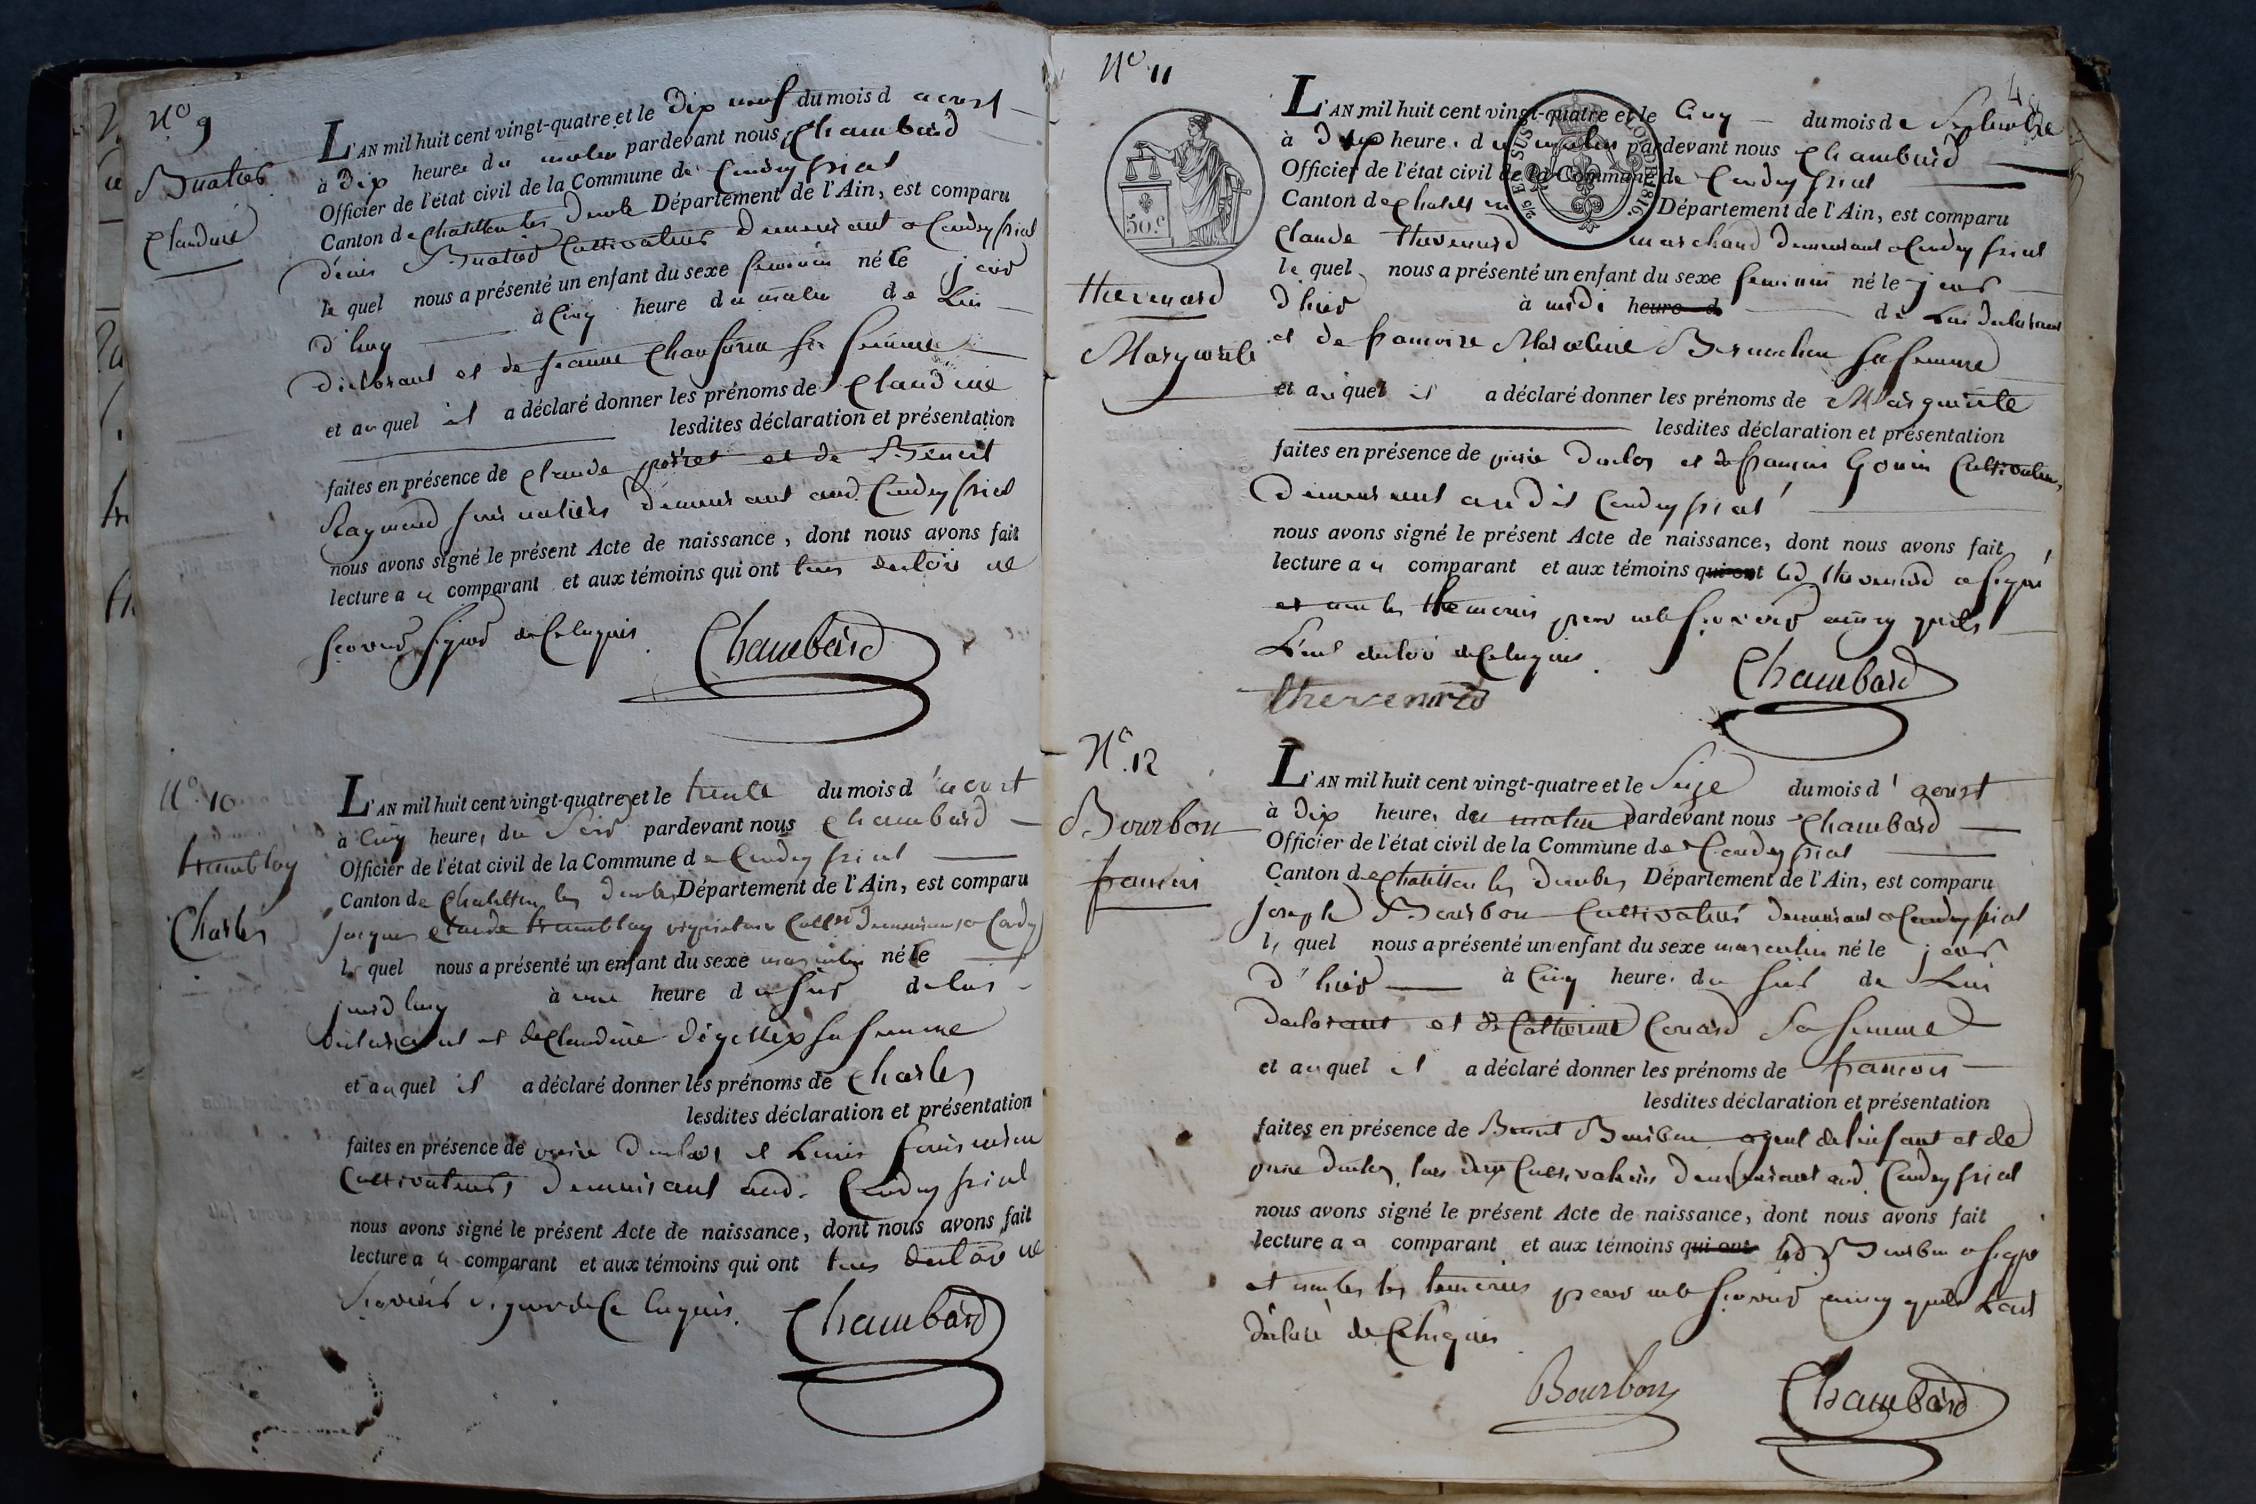 N.o 9
Buatier
Claudine
L'AN mil huit cent vingt-quatre et le Dix neuf du mois d aoust
à Dix heure du matin pardevant nous Chambard
Officier de l'état civil de la Commune de Condeyssiat
Canton de Chatillon les Dombe Département de l'Ain, est comparu
Denis Buatier Cultivateur demeurant a Condeyssiat
le quel nous a présenté un enfant du sexe feminin né le jour
d'huy à Cinq heure du matin de Lui
declarant et de Jeanne sa femme
et auquel il a déclaré donner les prénoms de Claudine
lesdites déclaration et présentation
faites en présence de Claude et de Benoit
Raymond demeurant aud. Condeyssiat
nous avons signé le présent Acte de naissance, dont nous avons fait
lecture au comparant et aux témoins qui ont tous declaré ne
scavoir signer de Ce Enquis.
Chambard
N.o 10
tramblay
Charles
L'AN mil huit cent vingt-quatre et le trente du mois d'aoust
à Cinq heure, du Soir pardevant nous Chambard
Officier de l'état civil de la Commune de Condeyssiat
Canton de Chatillon les Dombes Département de l'Ain, est comparu
Jacques Claude tramblay propriétaire Cult.r demeurant a Condey
le quel nous a présenté un enfant du sexe masculin né le
jourd'huy à une heure du soir de lui
declarant et de Claudine sa femme
et auquel il a déclaré donner les prénoms de Charles
lesdites déclaration et présentation
faites en présence de Duclos et Louis
Cultivateurs, demeurant aud. Condeyssiat
nous avons signé le présent Acte de naissance, dont nous avons fait
lecture au comparant et aux témoins qui ont tous declaré ne
scavoir signer de Ce Enquis.
Chambard
N.o 11
50.c
thevenard
Marguerite
L'AN mil huit cent vingt-quatre et le Cinq du mois de Septembre
à heure, du matin pardevant nous Chambard
Officier de l'état civil de la Commune de Condeyssiat
Canton de Chatillon Département de l'Ain, est comparu
Claude thevenard marchand demeurant a Condeyssiat
le quel nous a présenté un enfant du sexe feminin né le jour
d'hier à midi heure d de Lui declarant
et de francoise Marceline sa femme
et auquel il a déclaré donner les prénoms de Marguerite
lesdites déclaration et présentation
faites en présence de Duclos et de francois Gonin Cultivateurs
demeurant au dit Condeyssiat
nous avons signé le présent Acte de naissance, dont nous avons fait
lecture au comparant et aux témoins qui ont led thevenard a signé
et non les themoins pour ne le scavoir ainsy qu'ils
L'ont declaré de Ce Enquis.
thevenard
Chambard
N.o 12
Bourbon
francois
L'AN mil huit cent vingt-quatre et le Seize du mois d'aoust
à Dix heure, du matin pardevant nous Chambard
Officier de l'état civil de la Commune de Condeyssiat
Canton de Chatillon les Dombes Département de l'Ain, est comparu
joseph Bourbon Cultivateur demeurant a Condeyssiat
le quel nous a présenté un enfant du sexe masculin né le jour
d'hier à Cinq heure, du soir de Lui
declarant et de Catherine sa femme
et auquel il a déclaré donner les prénoms de francois
lesdites déclaration et présentation
faites en présence de Benoit Bourbon ayeul de l'enfant et de
Duclos, tous deux Cultivateurs demeurant aud Condeyssiat
nous avons signé le présent Acte de naissance, dont nous avons fait
lecture au comparant et aux témoins qui ont led Bourbon a signé
et non les temoins pour ne le scavoir ainsy qu'ils L'ont
declaré de Ce Enquis
Bourbon
Chambard